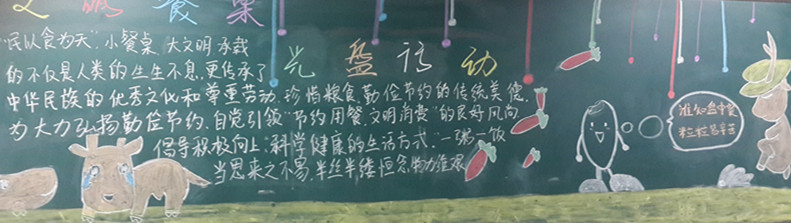 文明餐桌
光盘活动
"民以食为天",小餐桌,大文明,承载
的不仅是人类的生生不息,更传承了
中华民族的优秀文化和尊重劳动、珍惜粮食、勤俭节约的传统美德,
为大力弘扬勤俭节约,自觉引领"节约用餐、文明消费"的良好风向
倡导积极向上、科学健康的生活方式,"一粥一饭
当思来之不易,半丝半缕恒念物力维艰
谁知盘中餐
粒粒皆辛苦